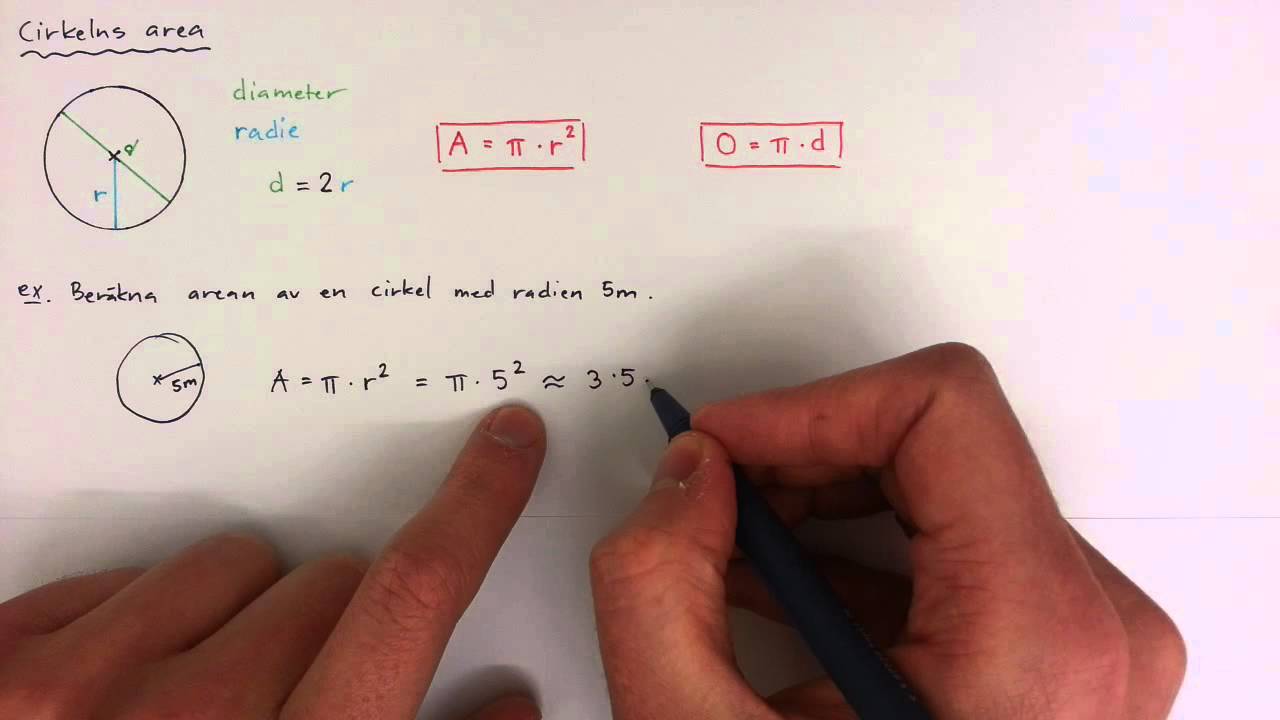 Cirkelns area
diameter
radie
d = 2r
d
r
A = π · r²
O = π · d
ex. Beräkna arean av en cirkel med radien 5m.
5m
A = π · r² = π · 5² ≈ 3 · 5 ·